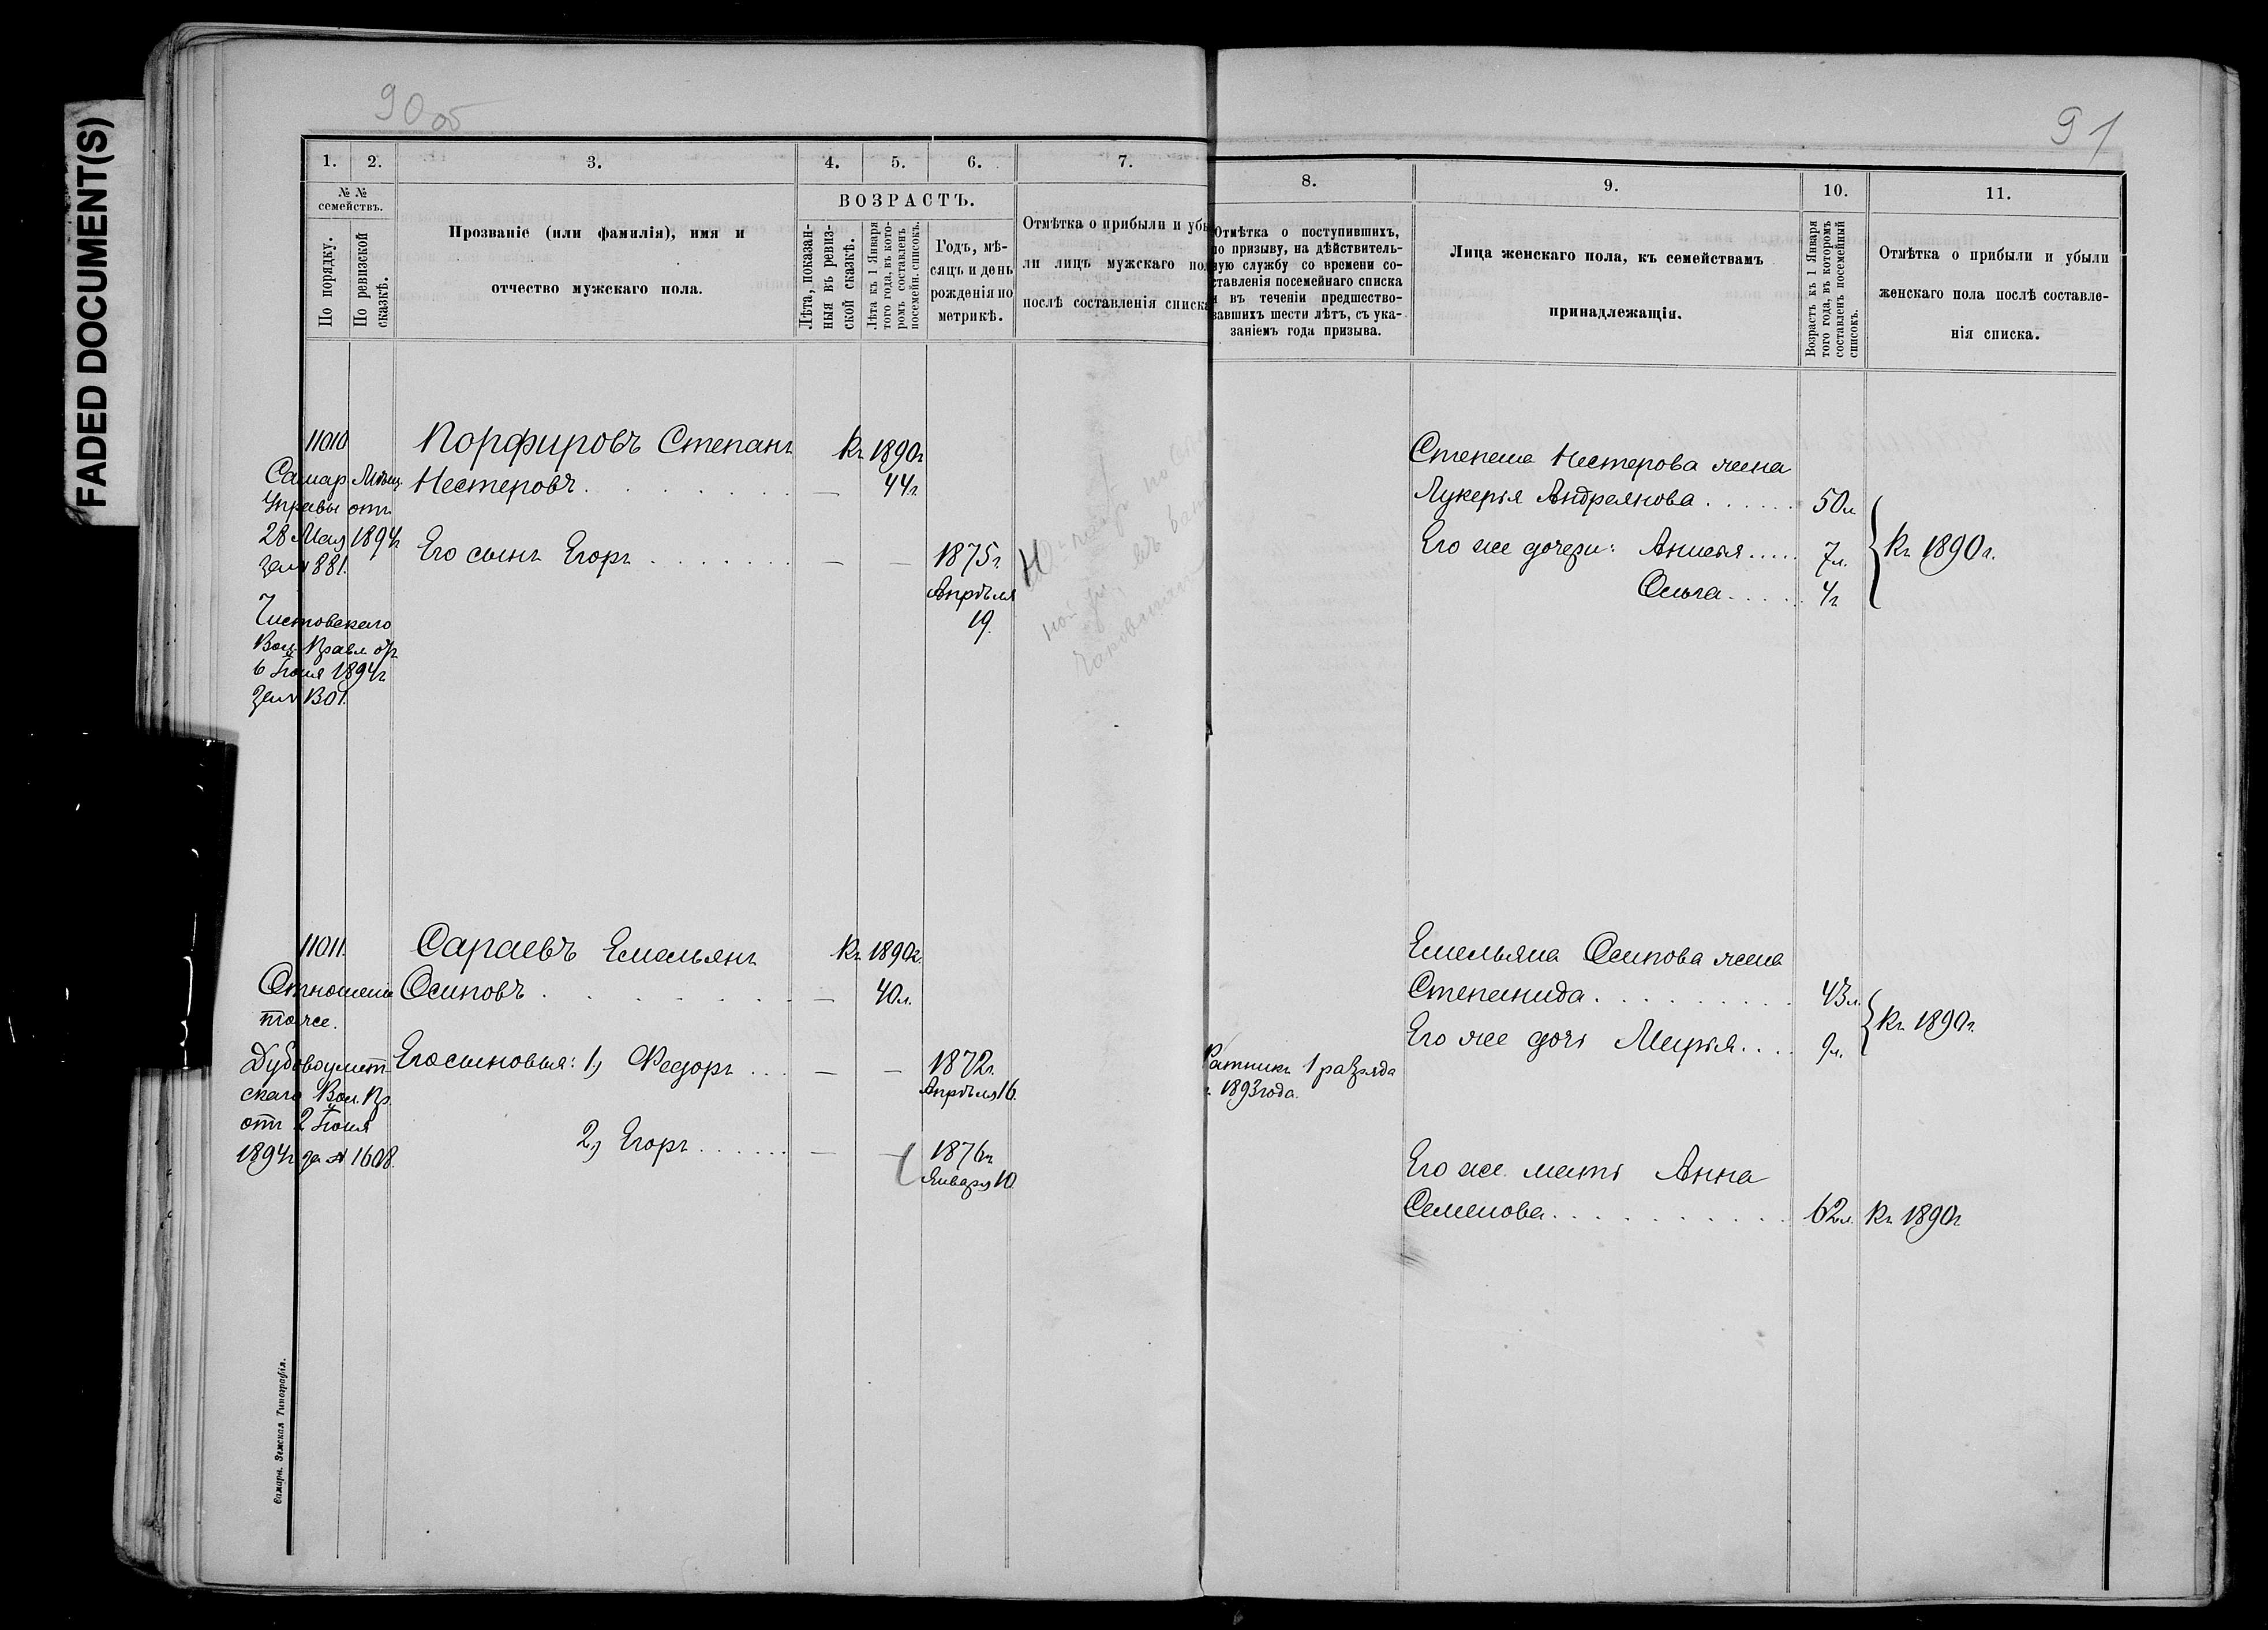 FADED DOCUMENT(S)
90 об
91
1.
2.
3.
4.
5.
6.
7.
8.
9.
10.
11.
№ №
семействъ.
По порядку.
По ревизской
сказкѣ.
Прозваніе (или фамилія), имя и
отчество мужскаго пола.
ВОЗРАСТЪ.
Лѣта, показан-
ныя въ ревиз-
ской сказкѣ.
Лѣта къ 1 Января
того года, въ кото-
ромъ составленъ
посемейн. списокъ.
Годъ, мѣ-
сяцъ и день
рожденія по
метрикѣ.
Отмѣтка о прибыли и убы
ли лицъ мужскаго пол
послѣ составленія списка
Отмѣтка о поступившихъ,
по призыву, на дѣйствитель-
ную службу со времени со-
ставленія посемейнаго списка
и въ теченіи предшество-
вавшихъ шести лѣтъ, съ ука-
заніемъ года призыва.
Лица женскаго пола, къ семействамъ
принадлежащія.
Возрастъ къ 1 Января
того года, въ которомъ
составленъ посемейный
списокъ.
Отмѣтка о прибыли и убыли
женскаго пола послѣ составле-
нія списка.
11010
Самар. Мѣщ.
Управы отъ
28 Мая 1894г
за № 881.
Чистовскаго
Вол. Правл. отъ
6 Іюня 1894г
за №
Порфировъ Степанъ
Нестеровъ
Къ 1890г
44г.
Его сынъ Егоръ
1875г.
Апрѣля
19.
Степана Нестерова жена
Лукерья Андреянова
50л
Его же дочери: Анисья
7л.
Ольга
4г
Къ 1890г.
11011.
Отношеніе
тоже.
Дубовоумет-
скаго Вол. Пр.
отъ 2 Іюня
1894г за № 1608.
Сараевъ Емельянъ
Осиповъ
Къ 1890г.
40л.
Его сыновья: 1, Федоръ
1872г.
Апрѣля 16.
2, Егоръ
1876г
Января 10.
Ратникъ 1 разряда
1893 года.
Емельяна Осипова жена
Степанида
43л.
Его же дочь Марья
9л.
Къ 1890г.
Его же мать Анна
Семенова
62л.
Къ 1890г
Самара. Земская Типографія.